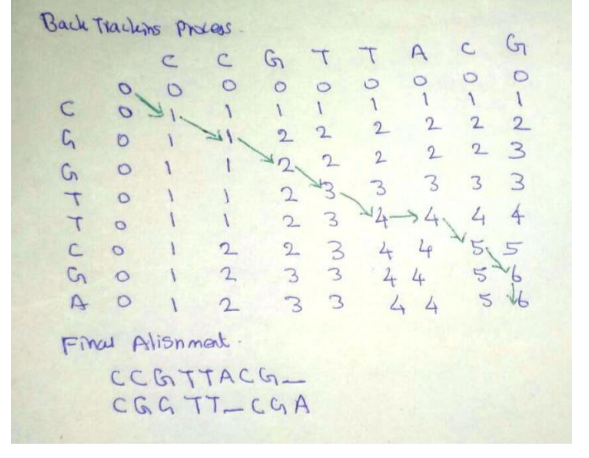 Back Tracking Process.
C C G T T A C G
0 0 0 0 0 0 0 0 0
C 0 1 1 1 1 1 1 1 1
G 0 1 1 2 2 2 2 2 2
G 0 1 1 2 2 2 2 2 3
T 0 1 1 2 3 3 3 3 3
T 0 1 1 2 3 4 4 4 4
C 0 1 2 2 3 4 4 5 5
G 0 1 2 3 3 4 4 5 6
A 0 1 2 3 3 4 4 5 6
Final Alignment.
CCGTTACG_
CGGTT_CGA